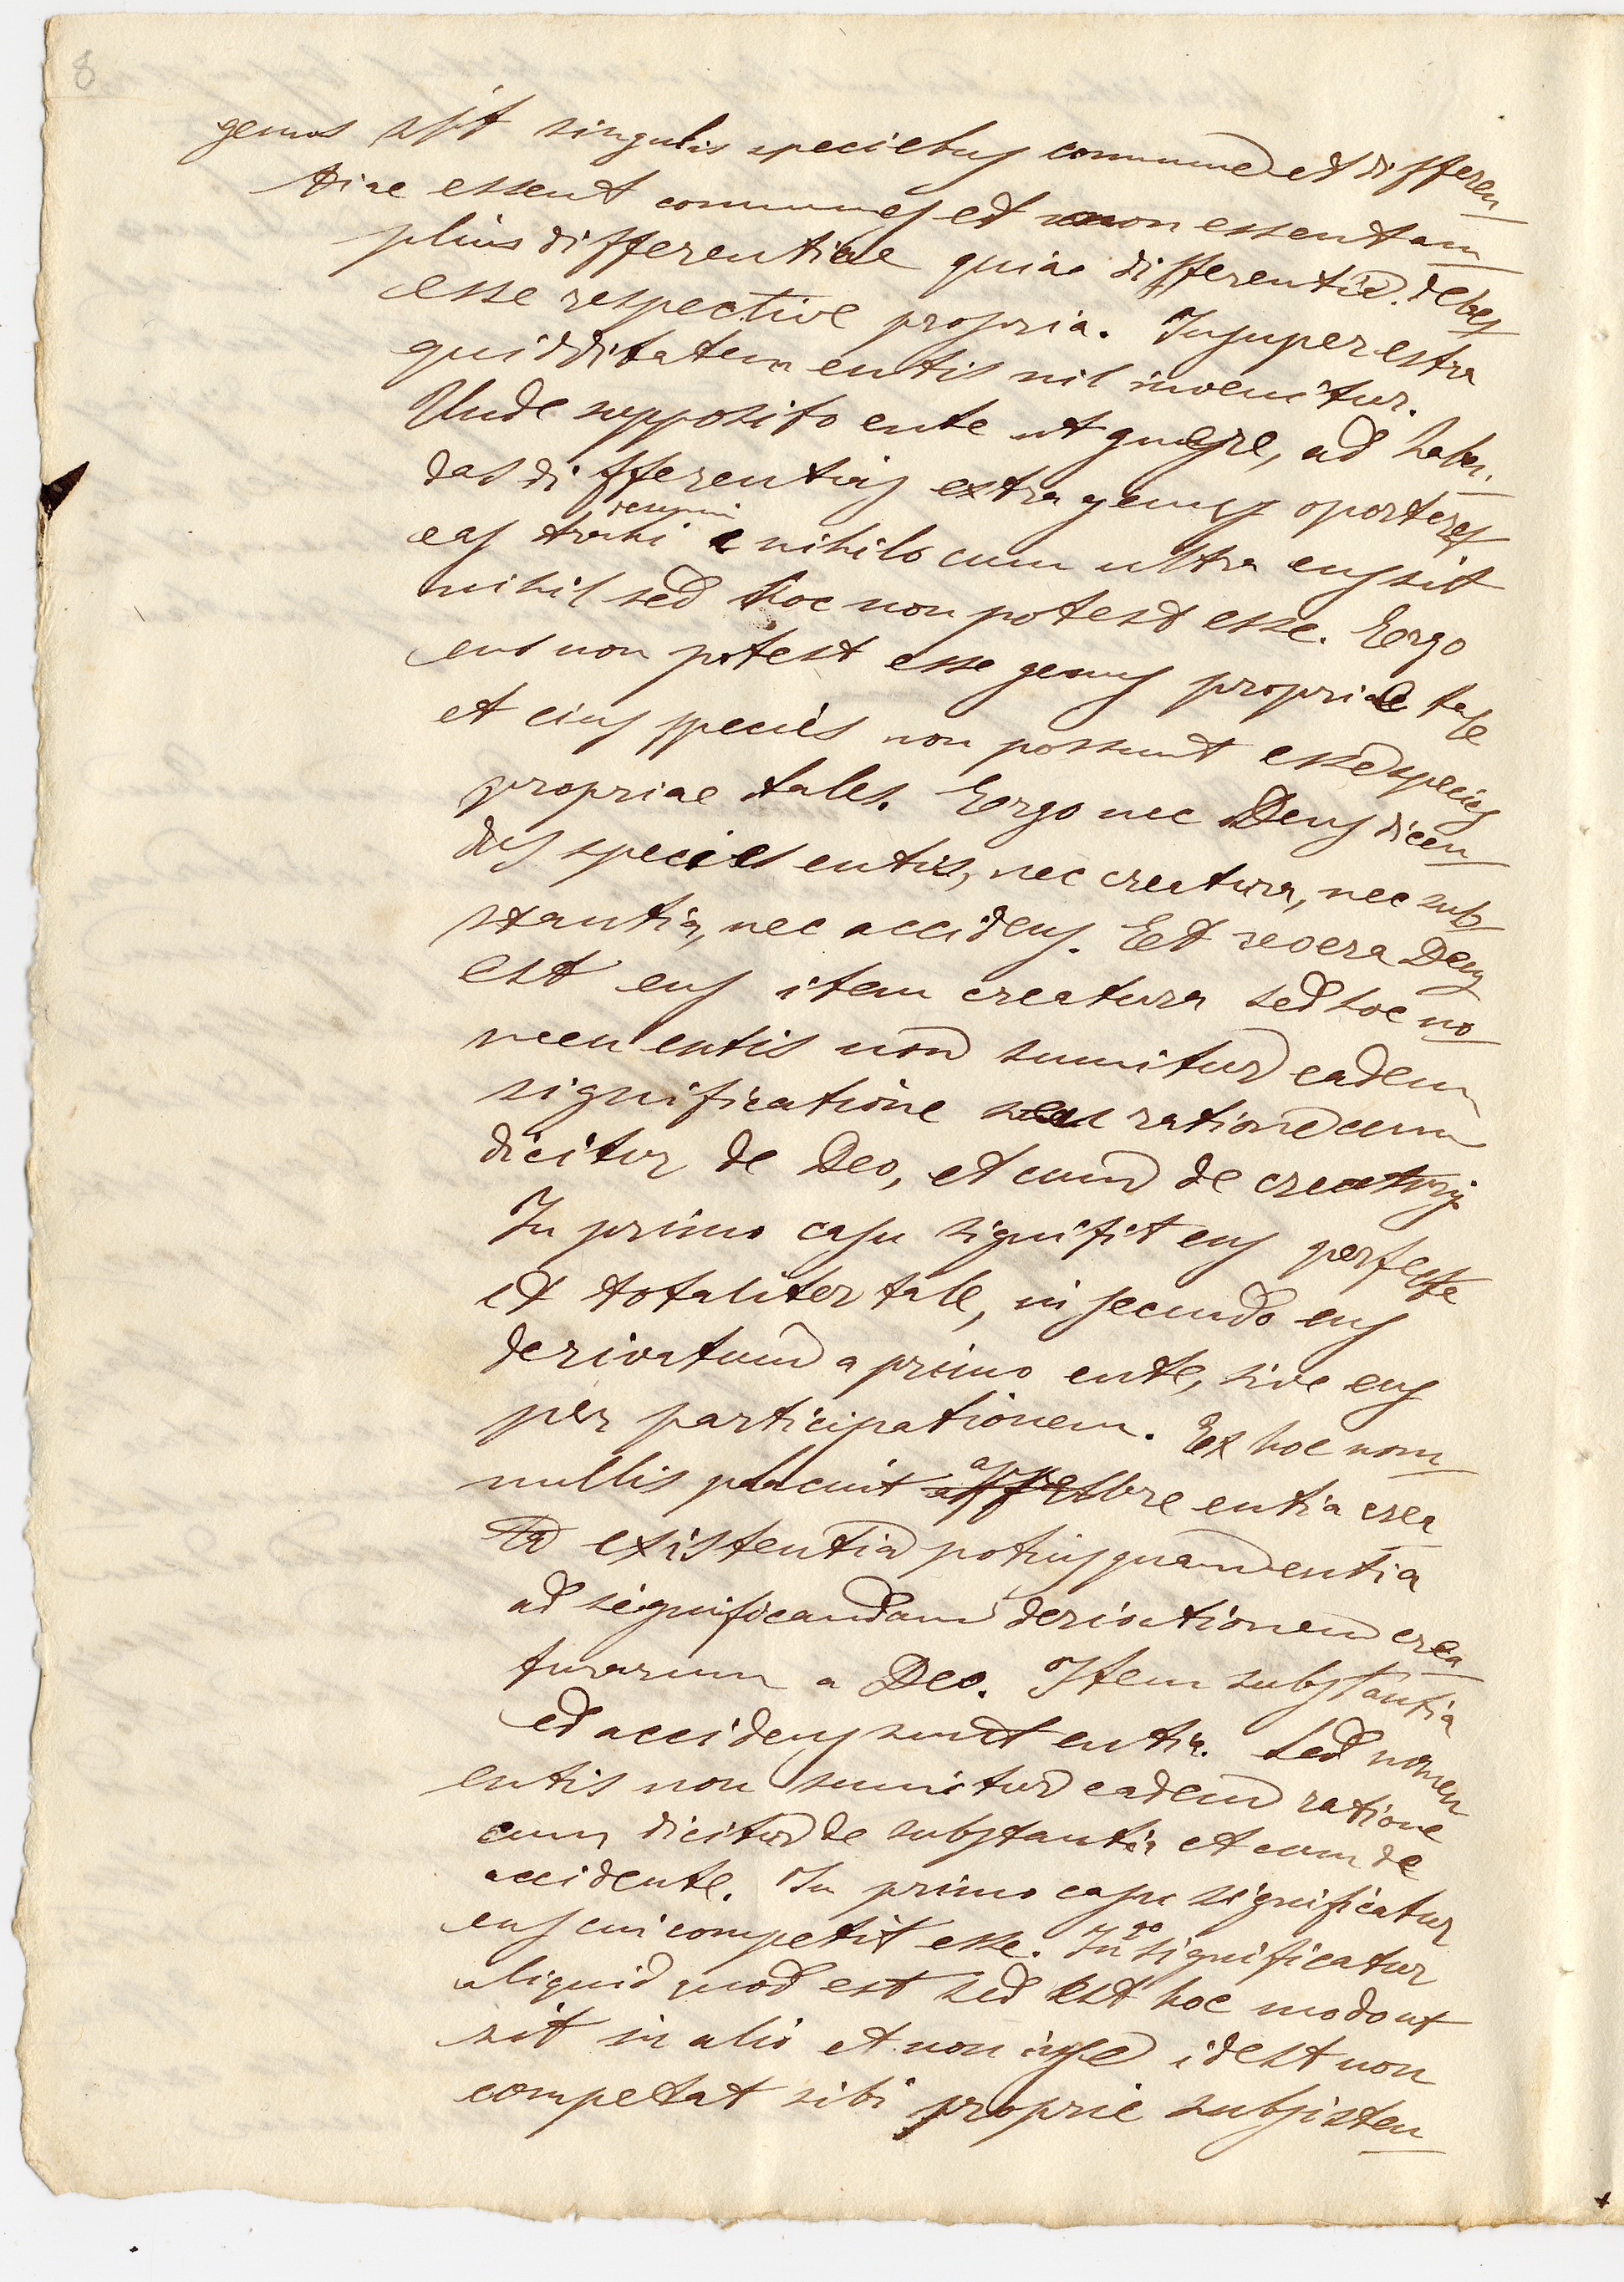 8
genus sit singulis speciebus commune et differen
tiae essent communes et non essent am
plius differentiae quia differentia debet
esse respective propria. Insuper extra
quidditatem entis nil invenitur.
Unde supposito ente ut genere, ad haben
das differentias extra genus oporteret
desumi
eas trahi e nihilo cum ultra ens sit
nihil sed hoc non potest esse. Ergo
ens non potest esse genus proprie tale
et eius species non possunt esse species
propriae tales. Ergo nec Deus dicen
dus species entis, nec creatura, nec sub
stantia, nec accidens. Et revera Deus
est ens item creatura sed hoc no
men entis non sumitur eadem
significatione seu ratione cum
dicitur de Deo, et cum de creaturis.
In primo casu signifit ens perfecte
et totaliter tale, in secundo ens
derivatum a primo ente, sive ens
per participationem. Ex hoc non
nullis placuit appellare entia crea
ta existentia potius quam entia
ad significandam derivationem crea
turarum a Deo. Item substantia
et accidens sunt entia. Sed nomen
entis non sumitur eadem ratione
cum dicitur de substantia et cum de
accidente. In primo casu significatur
ens cui competit esse. In 2º significatur
aliquid quod est sed est hoc modo ut
sit in alio et non in se idest non
competat sibi proprie subsisten